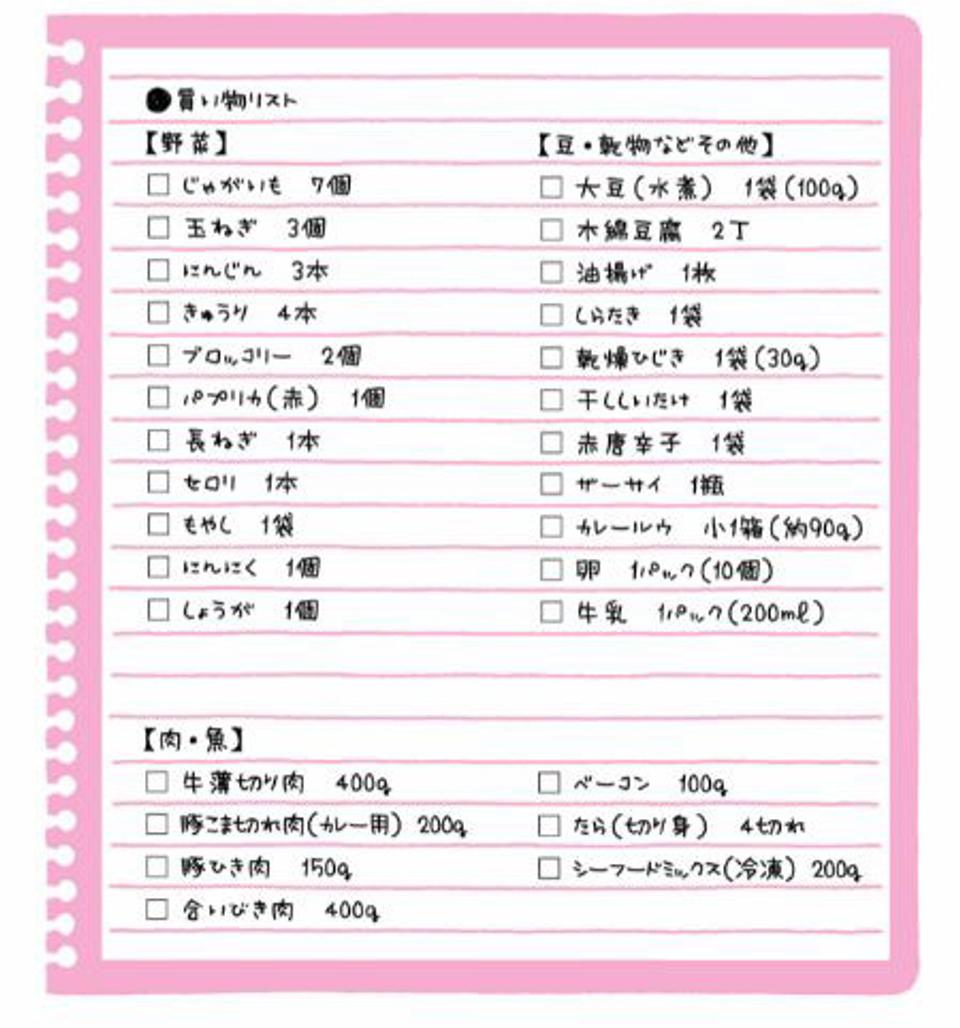 ●買い物リスト
【野菜】
□ じゃがいも 7個
□ 玉ねぎ 3個
□ にんじん 3本
□ きゅうり 4本
□ ブロッコリー 2個
□ パプリカ(赤) 1個
□ 長ねぎ 1本
□ セロリ 1本
□ もやし 1袋
□ にんにく 1個
□ しょうが 1個
【豆・乾物などその他】
□ 大豆(水煮) 1袋(100g)
□ 木綿豆腐 2丁
□ 油揚げ 1枚
□ しらたき 1袋
□ 乾燥ひじき 1袋(30g)
□ 干ししいたけ 1袋
□ 赤唐辛子 1袋
□ ザーサイ 1瓶
□ カレールウ 小1箱(約90g)
□ 卵 1パック(10個)
□ 牛乳 1パック(200ml)
【肉・魚】
□ 牛薄切り肉 400g
□ 豚こま切れ肉(カレー用) 200g
□ 豚ひき肉 150g
□ 合いびき肉 400g
□ ベーコン 100g
□ たら(切り身) 4切れ
□ シーフードミックス(冷凍) 200g